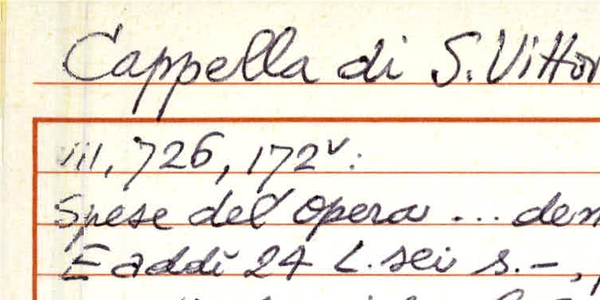 Cappella di S. Vittor
VIII, 726, 172v:
Spese del' opera ... den
E addì 24 L. sei s.-,